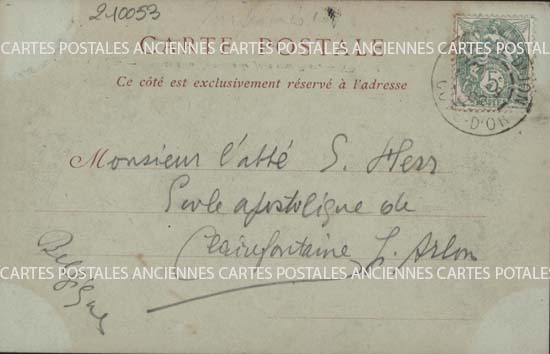 210053
CARTE POSTALE
CARTES POSTALES ANCIENNES CARTES POSTALES ANCIENNES CARTES POTALES
Ce côté est exclusivement réservé à l'adresse
5
CÔTE-D'OR
Monsieur l'abbé S. Herr
Ecole apostolique de
Clairefontaine p. Arlon
Belgique
CARTES POSTALES ANCIENNES CARTES POSTALES ANCIENNES CARTES POTALES